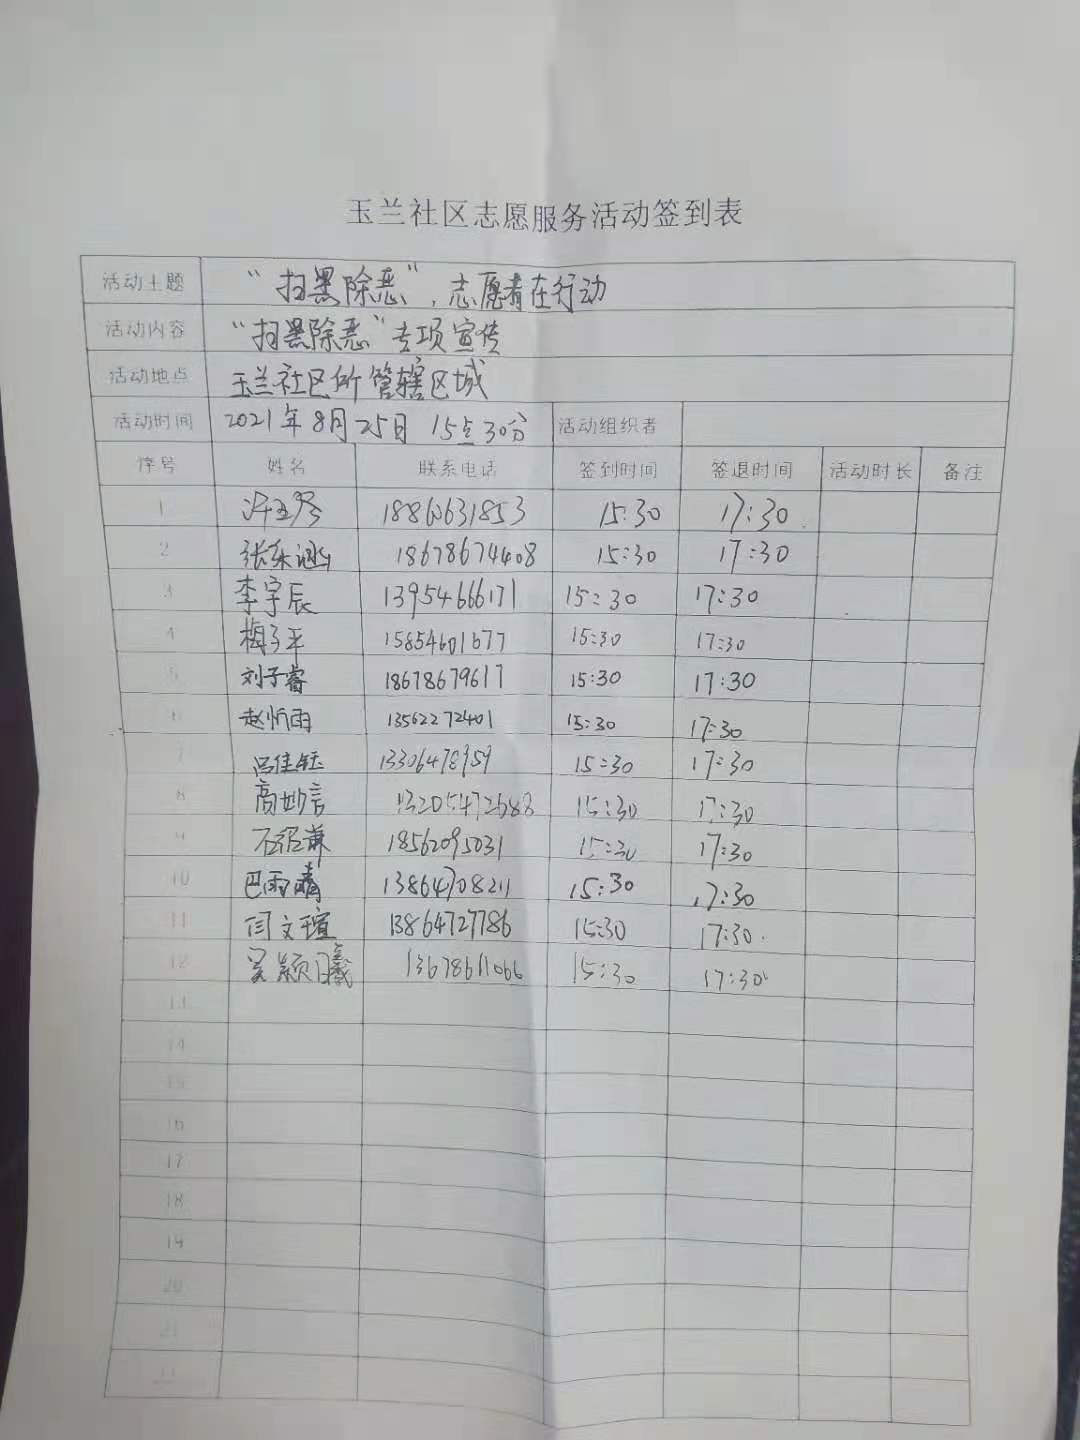 玉兰社区志愿服务活动签到表
活动主题 “扫黑除恶”，志愿者在行动
活动内容 “扫黑除恶”专项宣传
活动地点 玉兰社区所管辖区域
活动时间 2021年8月25日 15点30分 活动组织者
序号 姓名 联系电话 签到时间 签退时间 活动时长 备注
1 15:30 17:30
2 张东涵 18678674408 15:30 17:30
3 李宇辰 13954666171 15:30 17:30
4 梅子平 15854601677 15:30 17:30
5 刘子睿 18678679617 15:30 17:30
6 赵忻雨 13562272401 15:30 17:30
7 吕佳钰 13306478959 15:30 17:30
8 高妙言 13205472688 15:30 17:30
9 18562095031 15:30 17:30
10 巴雨晴 13864708211 15:30 17:30
11 闫文瑄 13864727786 15:30 17:30
12 吴颖曦 13678611066 15:30 17:30
13
14
15
16
17
18
19
20
21